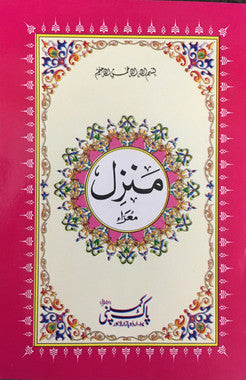 بسم الله الرحمن الرحيم
منزل
معراء
پاک کمپنی